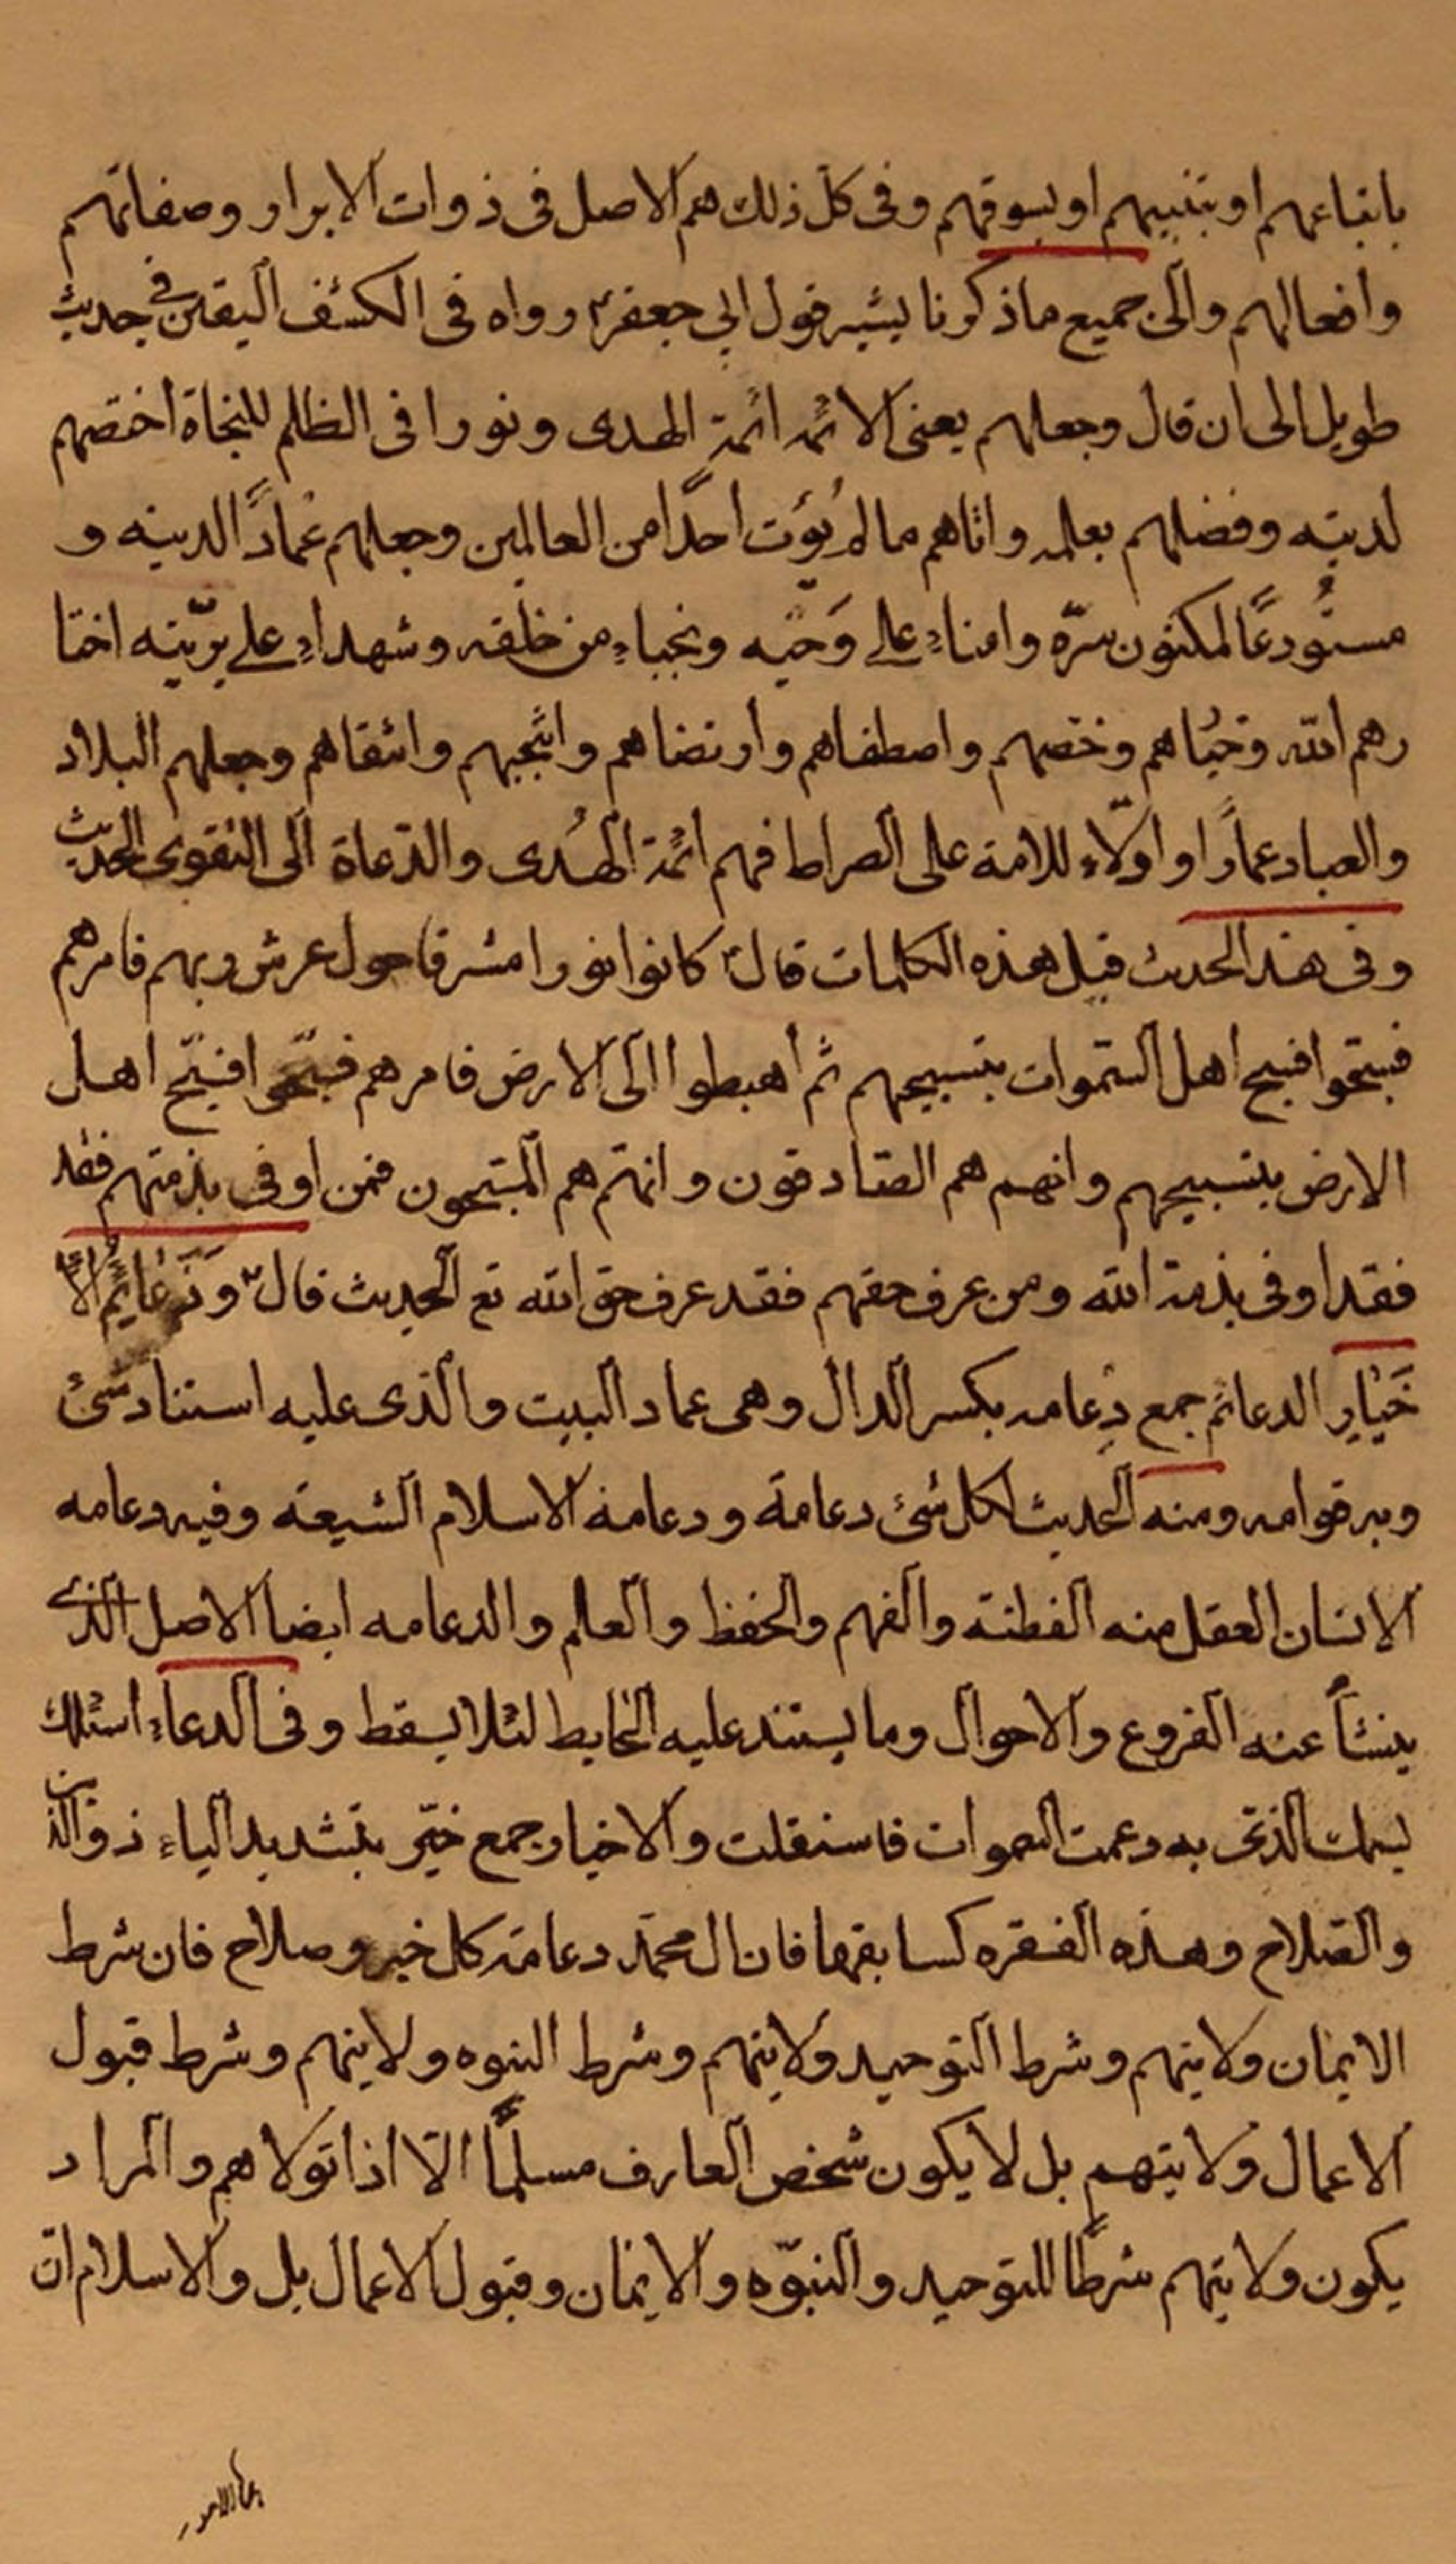 باتباعهم او بتنبيههم او بسوقهم وفى كل ذلك هم الاصل فى ذوات الابرار وصفاتهم
وافعالهم والى جميع ما ذكرنا يشير قول ابي جعفرؑ رواه فى الكشف اليقين فى حديث
طويل الى ان قال وجعلهم يعنى الائمه ائمة الهدى ونورا فى الظلم للنجاة اختصهم
لدينه وفضلهم بعلمه واتاهم ما لم يُؤت احدًا من العالمين وجعلهم عمادًا لدينه و
مستُودعًا لمكنون سرّه وامناء على وَحيه ونجباء من خلقه وشهداء على بريّته اختا
رهم الله وحبُاهم وخصهم واصطفاهم وارتضاهم وانتجبهم وانتقاهم وجعلهم البلاد
والعباد عمارًا واولاء للامة على الصراط فهم ائمة الهُدى والدّعاة الى التقوى الحديث
وفى هذا الحديث قبل هذه الكلمات قالؑ كانوا نورا مشرقا حول عرش ربهم فامرهم
فسبّحوا فسبح اهل السّموات بتسبيحهم ثم اهبطوا الى الارض فامرهم فسبّحوا فسبّح اهل
الارض بتسبيحهم وانهم هم الصّادقون وانهم هم المسبّحون فمن اوفى بذمتهم فقد
فقد اوفى بذمة الله ومن عرف حقهم فقد عرف حق الله تع الحديث قالؑ وَدَعَائِمُ الْاَ
خَيٰارِ الدعائم جمع دِعامه بكسر الدال وهى عماد البيت والّذى عليه استناد شئ
وبه قوامه ومنه الحديث لكل شئ دعامة ودعامة الاسلام الشيعة وفيه دعامه
الانسان العقل منه الفطنة والفهم والحفظ والعلم والدعامه ايضا الاصل الّذى
ينشأ عنه الفروع والاحوال وما يستند عليه الحايط لئلا يسقط وفى الدعاء اسئلك
بسمك الذى به دعمت السموات فاستقلت والاخيار جمع خيّر بتشديد الياء ذو الدين
والصّلاح وهذه الفقره كسابقها فان ال محمّد دعامة كل خير وصلاح فان شرط
الايمان ولايتهم وشرط التوحيد ولايتهم وشرط النبوه ولايتهم وشرط قبول
الاعمال ولايتهم بل لا يكون شخص العارف مسلمًا الّا اذا تولاهم والمراد
يكون ولايتهم شرطًا للتوحيد والنبوّه والايمان وقبول الاعمال بل والاسلام ان